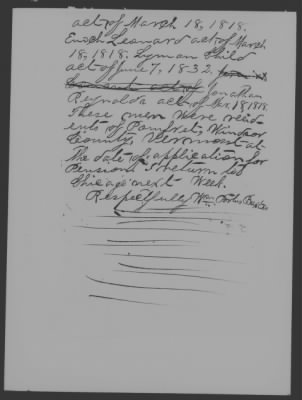 act of March 18, 1818.
Enoch Leonard act of March
18, 1818. Lyman Child
act of June 7, 1832.
act of Jonathan
Reynolds act of Mar. 18, 1818.
These men were resid-
ents of Pomfret, Windsor
County, Vermont at
the date of application for
Pension. I return to
Chicago next Week.
Respectfully Wm